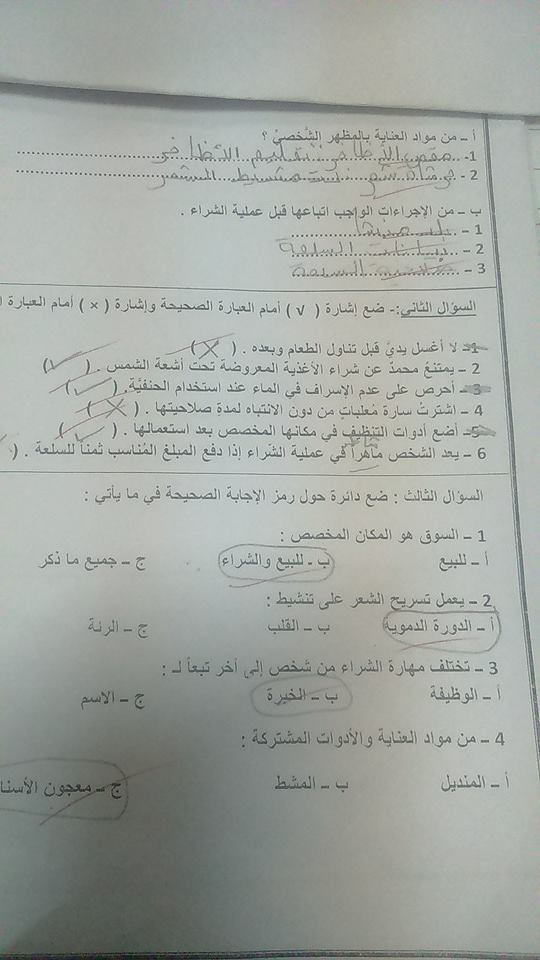 أ – من مواد العناية بالمظهر الشخصي ؟
1- مقص الأظافر لتقليم الأظافر
2 - فرشاة شعر لتمشيط الشعر
ب – من الإجراءات الواجب اتباعها قبل عملية الشراء .
1 –
2 – بيانات السلعة
3 – السلعة
السؤال الثاني:- ضع إشارة ( √ ) أمام العبارة الصحيحة وإشارة ( × ) أمام العبارة
1- لا أغسل يديَّ قبل تناول الطعام وبعده . ( X )
2 - يمتنعُ محمدٌ عن شراء الأغذية المعروضة تحت أشعة الشمس . ( √ )
3- أحرص على عدم الإسراف في الماء عند استخدام الحنفيّة. ( √ )
4 - اشترتْ سارة مُعلباتٍ من دون الانتباه لمدةِ صلاحيتها . ( X )
5- أضع أدوات التنظيف في مكانها المخصص بعد استعمالها . ( √ )
6 - يعد الشخص ماهراً في عملية الشراء إذا دفع المبلغ المُناسب ثمناً للسلعة . (
السؤال الثالث : ضع دائرة حول رمز الإجابة الصحيحة في ما يأتي :
1 – السوق هو المكان المخصص :
أ – للبيع ب – للبيع والشراء ج – جميع ما ذكر
2 – يعمل تسريح الشعر على تنشيط :
أ – الدورة الدموية ب – القلب ج – الرئة
3 – تختلف مهارة الشراء من شخص إلى أخر تبعاً لـ :
أ – الوظيفة ب – الخبرة ج – الاسم
4 – من مواد العناية والأدوات المشتركة :
أ – المنديل ب – المشط ج – معجون الأسنا